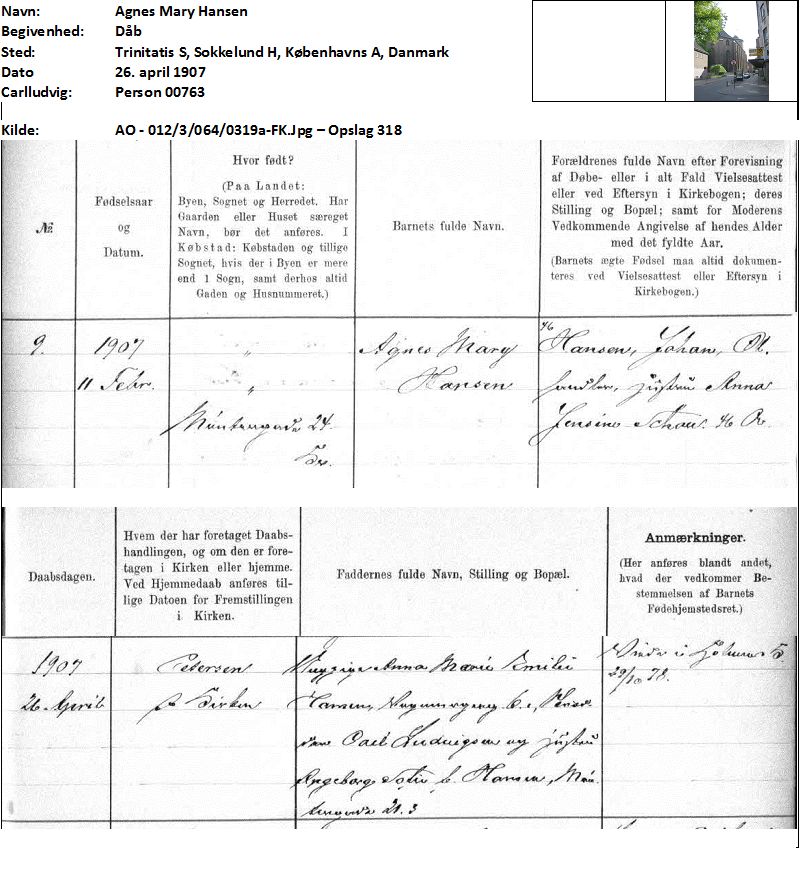 Navn: Agnes Mary Hansen
Begivenhed: Dåb
Sted: Trinitatis S, Sokkelund H, Københavns A, Danmark
Dato 26. april 1907
Carlludvig: Person 00763
Kilde: AO - 012/3/064/0319a-FK.Jpg – Opslag 318
№
Fødselsaar
og
Datum.
Hvor født?
(Paa Landet:
Byen, Sognet og Herredet. Har
Gaarden eller Huset særeget
Navn, bør det anføres. I
Købstad: Købstaden og tillige
Sognet, hvis der i Byen er mere
end 1 Sogn, samt derhos altid
Gaden og Husnummeret.)
Barnets fulde Navn.
Forældrenes fulde Navn efter Forevisning
af Døbe- eller i alt Fald Vielsesattest
eller ved Eftersyn i Kirkebogen; deres
Stilling og Bopæl; samt for Moderens
Vedkommende Angivelse af hendes Alder
med det fyldte Aar.
(Barnets ægte Fødsel maa altid dokumen-
teres ved Vielsesattest eller Eftersyn i
Kirkebogen.)
9.
1907
11 Febr.
"
"
Møntergade 24
Agnes Mary
Hansen
Hansen, Johan,
handler, Hustru Anna
Jensine
Daabsdagen.
Hvem der har foretaget Daabs-
handlingen, og om den er fore-
tagen i Kirken eller hjemme.
Ved Hjemmedaab anføres til-
lige Datoen for Fremstillingen
i Kirken.
Faddernes fulde Navn, Stilling og Bopæl.
Anmærkninger.
(Her anføres blandt andet,
hvad der vedkommer Be-
stemmelsen af Barnets
Fødehjemstedsret.)
1907
26. April
Petersen
Kirken
Anna Marie Emilie
Hansen,
Carl Ludvigsen og Hustru
Ingeborg Sofie f. Hansen, Møn-
tergade 21.3